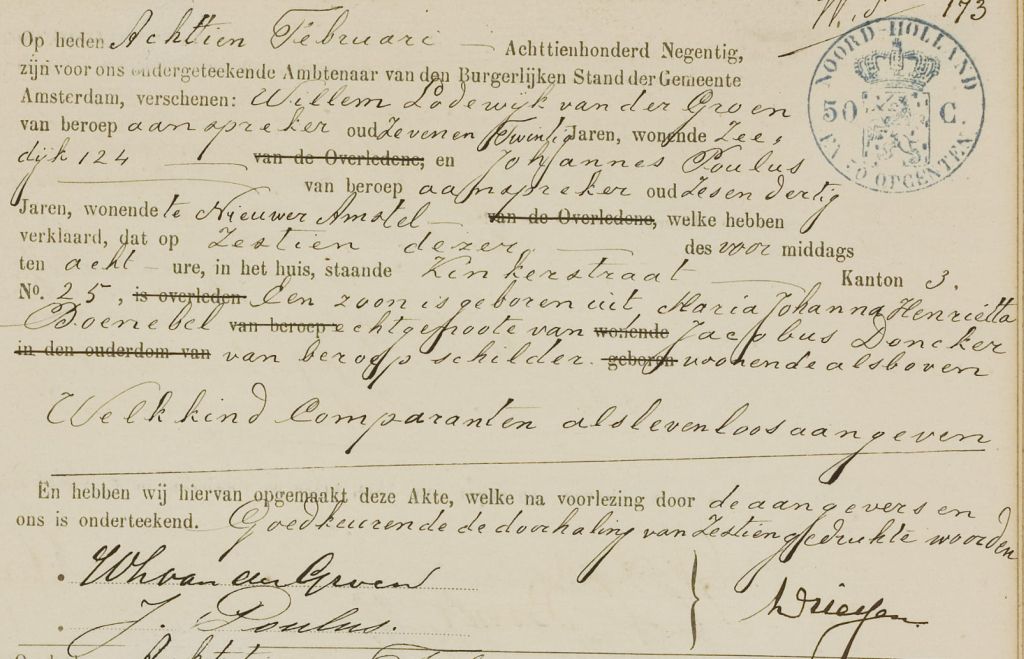 173
NOORD-HOLLAND
50 C.
EN 70 OPCENTEN
Op heden Achttien Februari Achttienhonderd Negentig,
zijn voor ons ondergeteekende Ambtenaar van den Burgerlijken Stand der Gemeente
Amsterdam, verschenen: Willem Lodewijk van der Groen
van beroep aanspreker oud Zeven en Twintig Jaren, wonende Zee,
dijk 124 van de Overledene; en Johannes Poulus
van beroep aanspreker oud Zes en dertig
Jaren, wonende te Nieuwer Amstel van de Overledene, welke hebben
verklaard, dat op Zestien dezer, des voor middags
ten acht ure, in het huis, staande Kinkerstraat Kanton 3.
No. 25, is overleden Een zoon is geboren uit, Maria Johanna Henrietta
Boenebel van beroep echtgenoote van wonende Jacobus Doncker
in den ouderdom van van beroep schilder. geboren woonende als boven
Welk kind Comparanten als levenloos aangeven
En hebben wij hiervan opgemaakt deze Akte, welke na voorlezing door de aangevers en
ons is onderteekend. Goedkeurende de doorhaling van Zestien gedrukte woorden
WL van der Groen
J. Poulus.